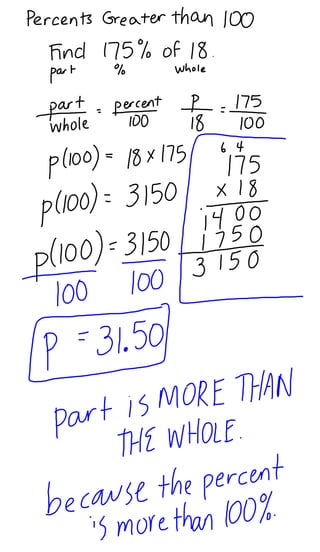 Percents Greater than 100
Find 175% of 18.
part % whole
part/whole = percent/100 P/18 = 175/100
p(100) = 18 x 175
p(100) = 3150
p(100)/100 = 3150/100
P = 31.50
6 4
175
x 18
1400
1750
3150
part is MORE THAN
THE WHOLE.
because the percent
is more than 100%.